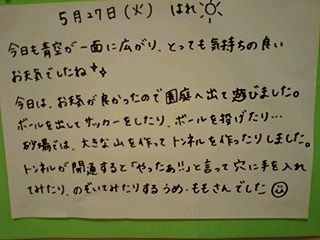 5月27日(火) はれ
今日も青空が一面に広がり、とっても気持ちの良い
お天気でしたね
今日は、お天気が良かったので園庭へ出て遊びました。
ボールを出してサッカーをしたり、ボールを投げたり…
砂場では、大きな山を作ってトンネルを作ったりしました。
トンネルが開通すると「やったあ!!」と言って穴に手を入れ
てみたり、のぞいてみたりするうめ・ももさんでした